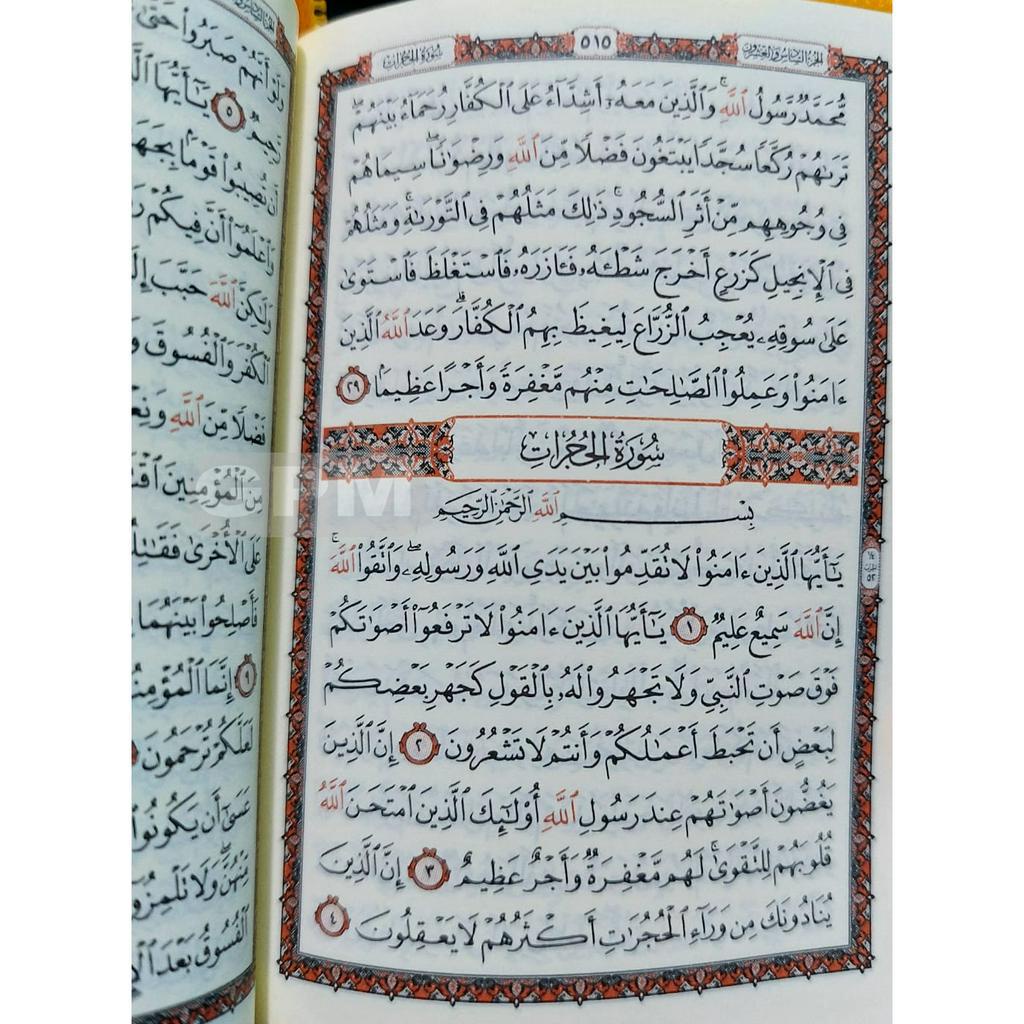 سُورَةُ الحُجُرَاتِ
٥١٥
الجُزْءُ السَّادِسُ وَالعِشْرُونَ
مُّحَمَّدٌ رَّسُولُ ٱللَّهِۚ وَٱلَّذِينَ مَعَهُۥٓ أَشِدَّآءُ عَلَى ٱلْكُفَّارِ رُحَمَآءُ بَيْنَهُمْۖ
تَرَىٰهُمْ رُكَّعًا سُجَّدًا يَبْتَغُونَ فَضْلًا مِّنَ ٱللَّهِ وَرِضْوَٰنًاۖ سِيمَاهُمْ
فِى وُجُوهِهِم مِّنْ أَثَرِ ٱلسُّجُودِۚ ذَٰلِكَ مَثَلُهُمْ فِى ٱلتَّوْرَىٰةِۚ وَمَثَلُهُمْ
فِى ٱلْإِنجِيلِ كَزَرْعٍ أَخْرَجَ شَطْـَٔهُۥ فَـَٔازَرَهُۥ فَٱسْتَغْلَظَ فَٱسْتَوَىٰ
عَلَىٰ سُوقِهِۦ يُعْجِبُ ٱلزُّرَّاعَ لِيَغِيظَ بِهِمُ ٱلْكُفَّارَۗ وَعَدَ ٱللَّهُ ٱلَّذِينَ
ءَامَنُوا۟ وَعَمِلُوا۟ ٱلصَّٰلِحَٰتِ مِنْهُم مَّغْفِرَةً وَأَجْرًا عَظِيمًۢا ٢٩
سُورَةُ الحُجُرَاتِ
بِسْمِ ٱللَّهِ ٱلرَّحْمَٰنِ ٱلرَّحِيمِ
يَٰٓأَيُّهَا ٱلَّذِينَ ءَامَنُوا۟ لَا تُقَدِّمُوا۟ بَيْنَ يَدَىِ ٱللَّهِ وَرَسُولِهِۦۖ وَٱتَّقُوا۟ ٱللَّهَۚ
إِنَّ ٱللَّهَ سَمِيعٌ عَلِيمٌ ١ يَٰٓأَيُّهَا ٱلَّذِينَ ءَامَنُوا۟ لَا تَرْفَعُوٓا۟ أَصْوَٰتَكُمْ
فَوْقَ صَوْتِ ٱلنَّبِىِّ وَلَا تَجْهَرُوا۟ لَهُۥ بِٱلْقَوْلِ كَجَهْرِ بَعْضِكُمْ
لِبَعْضٍ أَن تَحْبَطَ أَعْمَٰلُكُمْ وَأَنتُمْ لَا تَشْعُرُونَ ٢ إِنَّ ٱلَّذِينَ
يَغُضُّونَ أَصْوَٰتَهُمْ عِندَ رَسُولِ ٱللَّهِ أُو۟لَٰٓئِكَ ٱلَّذِينَ ٱمْتَحَنَ ٱللَّهُ
قُلُوبَهُمْ لِلتَّقْوَىٰۚ لَهُم مَّغْفِرَةٌ وَأَجْرٌ عَظِيمٌ ٣ إِنَّ ٱلَّذِينَ
يُنَادُونَكَ مِن وَرَآءِ ٱلْحُجُرَٰتِ أَكْثَرُهُمْ لَا يَعْقِلُونَ ٤
وَلَوْ أَنَّهُمْ صَبَرُوا۟ حَتَّىٰ
رَّحِيمٌ ٥ يَٰٓأَيُّهَا
أَن تُصِيبُوا۟ قَوْمًۢا
وَٱعْلَمُوٓا۟ أَنَّ فِيكُمْ
وَلَٰكِنَّ ٱللَّهَ حَبَّبَ
ٱلْكُفْرَ وَٱلْفُسُوقَ
فَضْلًا مِّنَ ٱللَّهِ
مِنَ ٱلْمُؤْمِنِينَ
عَلَى ٱلْأُخْرَىٰ
فَأَصْلِحُوا۟ بَيْنَهُمَا
٩ إِنَّمَا
لَعَلَّكُمْ تُرْحَمُونَ
عَسَىٰٓ أَن يَكُونُوا۟
مِّنْهُنَّۖ وَلَا تَلْمِزُوٓا۟
ٱلْفُسُوقُ بَعْدَ
PM